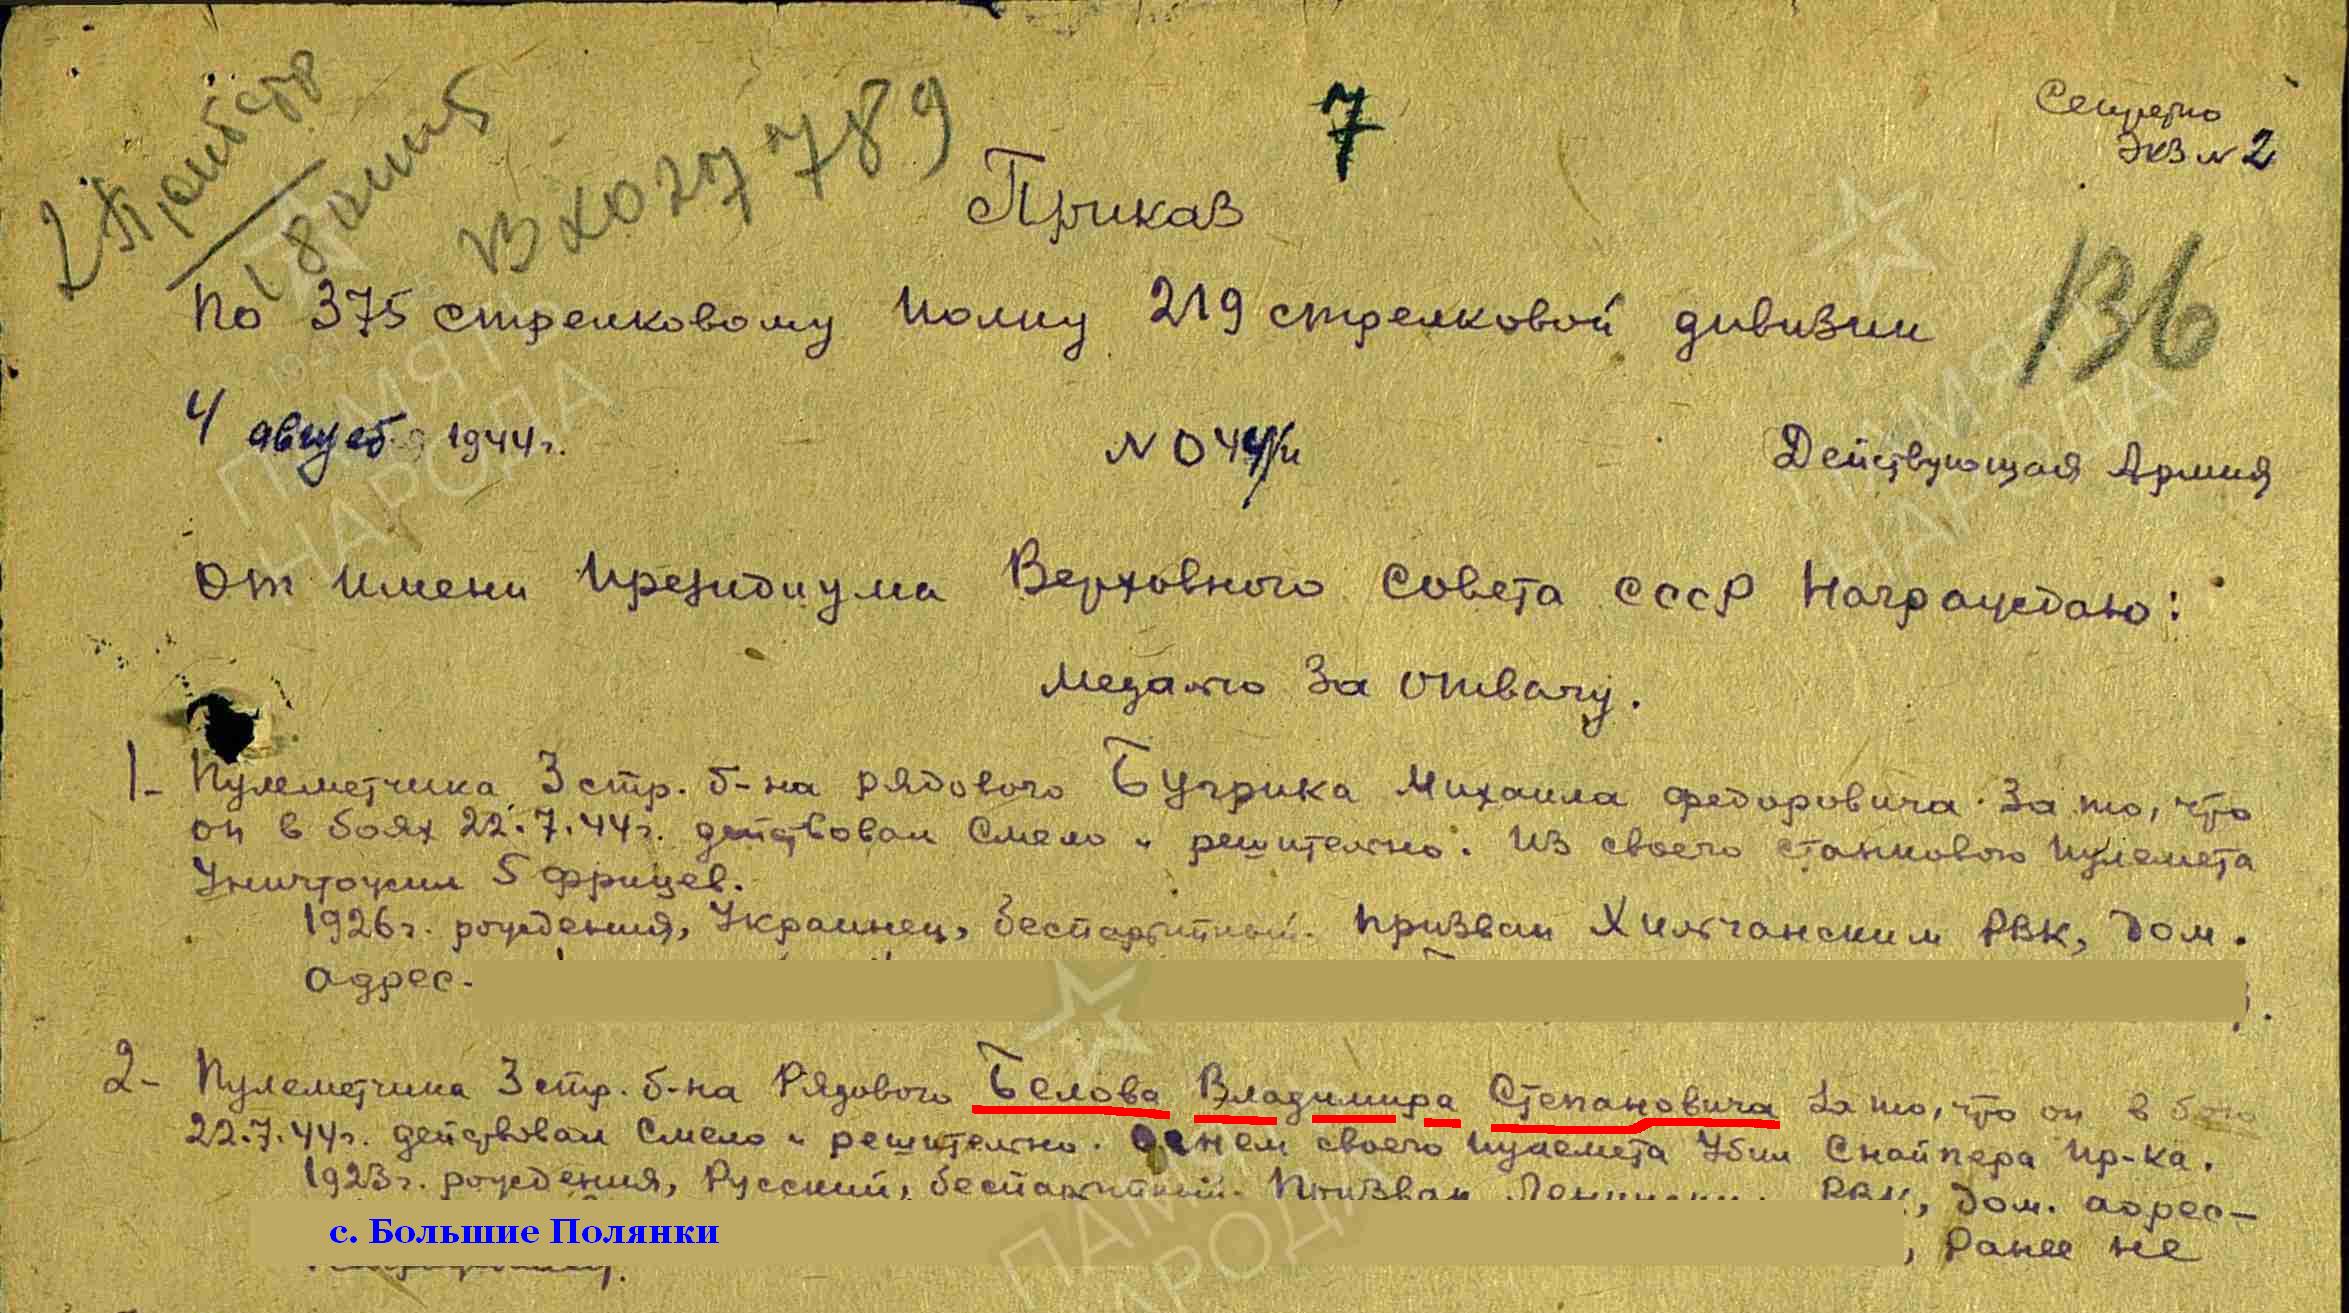 7
Секретно
Экз № 2
Вх 027789
Приказ
136
По 375 стрелковому полку 219 стрелковой дивизии
4 август 1944г.
N 044/н
Действующая Армия
От имени Президиума Верховного Совета СССР Награждаю:
Медалью За отвагу.
1- Пулеметчика 3 стр. б-на рядового Бугрика Михаила Федоровича. За то, что
он в боях 22.7.44г. действовал Смело и решительно. Из своего станкового пулемета
Уничтожил 5 фрицев.
1926г. рождения, Украинец, беспартийный. Призван Хильчанским РВК, Дом.
адрес-
2- Пулеметчика 3 стр. б-на Рядового Белова Владимира Степановича За то, что он в бою
22.7.44г. действовал Смело и решительно. Огнем своего пулемета Убил Снайпера пр-ка.
1923г. рождения, Русский, беспартийный. Призван РВК, Дом. адрес-
с. Большие Полянки
, Ранее не
ПАМЯТЬ НАРОДА
ПАМЯТЬ НАРОДА
ПАМЯТЬ НАРОДА